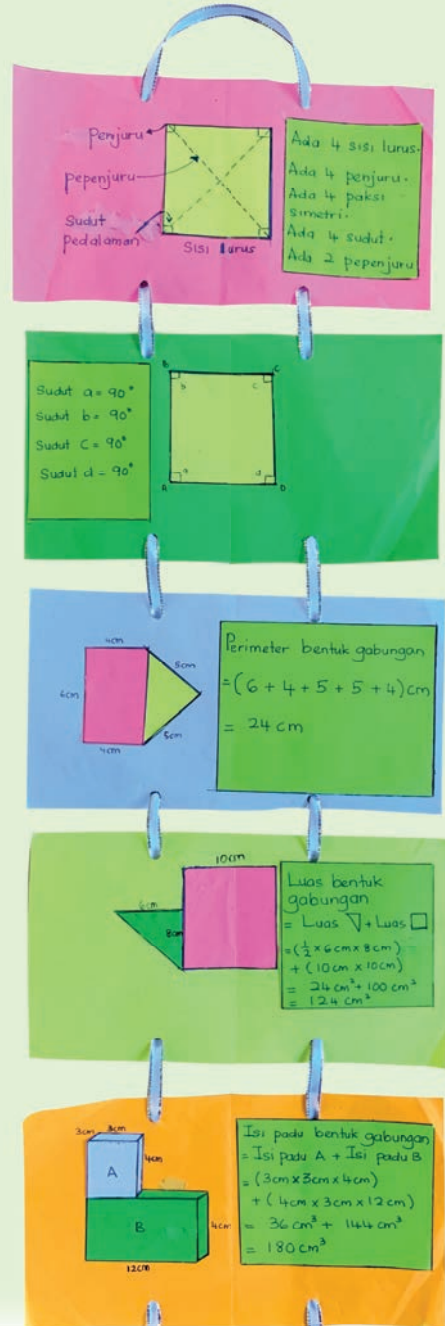 Penjuru
pepenjuru
Sudut
pedalaman
Sisi lurus
Ada 4 sisi lurus.
Ada 4 penjuru.
Ada 4 paksi
simetri.
Ada 4 sudut.
Ada 2 pepenjuru
Sudut a = 90°
Sudut b = 90°
Sudut c = 90°
Sudut d = 90°
B
C
b
c
a
d
A
D
4cm
5cm
6cm
4cm
5cm
Perimeter bentuk gabungan
= (6 + 4 + 5 + 5 + 4) cm
= 24 cm
10cm
6cm
8cm
Luas bentuk
gabungan
= Luas + Luas
= (½ × 6 cm × 8 cm)
+ (10 cm × 10 cm)
= 24 cm² + 100 cm²
= 124 cm²
3cm
3cm
4cm
A
B
4cm
12cm
Isi padu bentuk gabungan
= Isi padu A + Isi padu B
= (3cm × 3cm × 4cm)
+ (4cm × 3cm × 12cm)
= 36 cm³ + 144 cm³
= 180 cm³